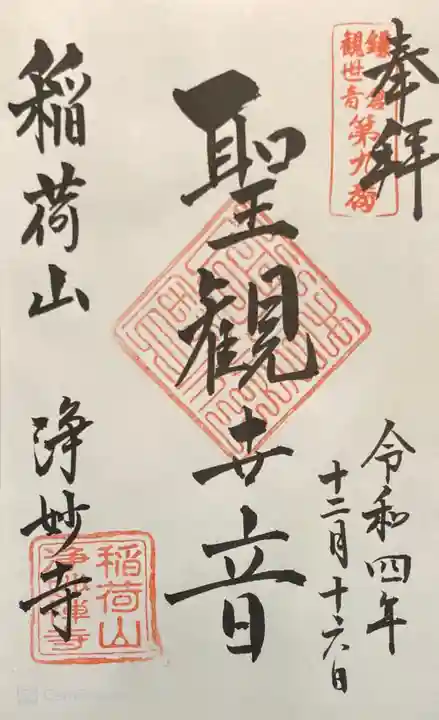 奉拝
鎌倉
観世音第九番
令和四年
十二月十六日
聖観世音
稲荷山 浄妙寺
稲荷山
浄妙禅寺